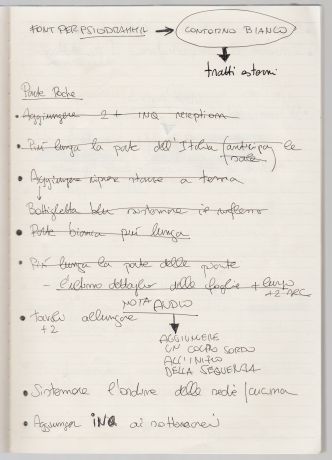 FONT PER PSICODRAMMA → CONTORNO BIANCO
tratti esterni
Parte Roche
• Aggiungere 2 + INQ reception
• Più lunga la parte dell' (anticipa) le
• Aggiungere stanze a terra
Bottiglietta blu sistemare il riflesso
• Parte bianca più lunga
• Più lunga la parte delle piante
- l'ultimo dettaglio delle foglie + lungo
+2 sec
NOTA AUDIO
• tavolo allungare
+2
AGGIUNGERE
UN COLPO SORDO
ALL'INIZIO
DELLA SEQUENZA
• Sistemare l'ordine delle sedie / cucina
• Aggiunger INQ ai sotterranei